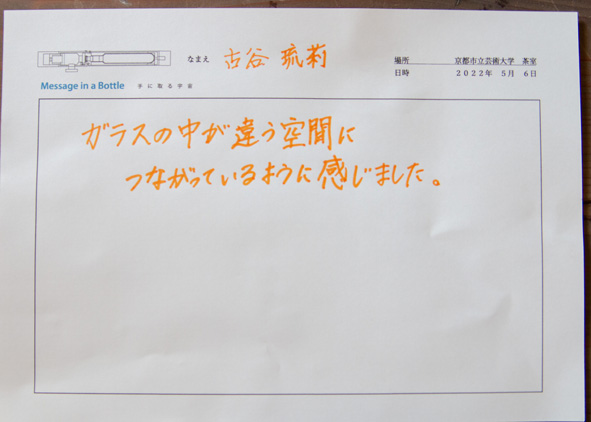 なまえ 古谷 琉莉
場所 京都市立芸術大学 茶室
日時 2022年 5月 6日
Message in a Bottle 手に取る宇宙
ガラスの中が違う空間に
つながっているように感じました。